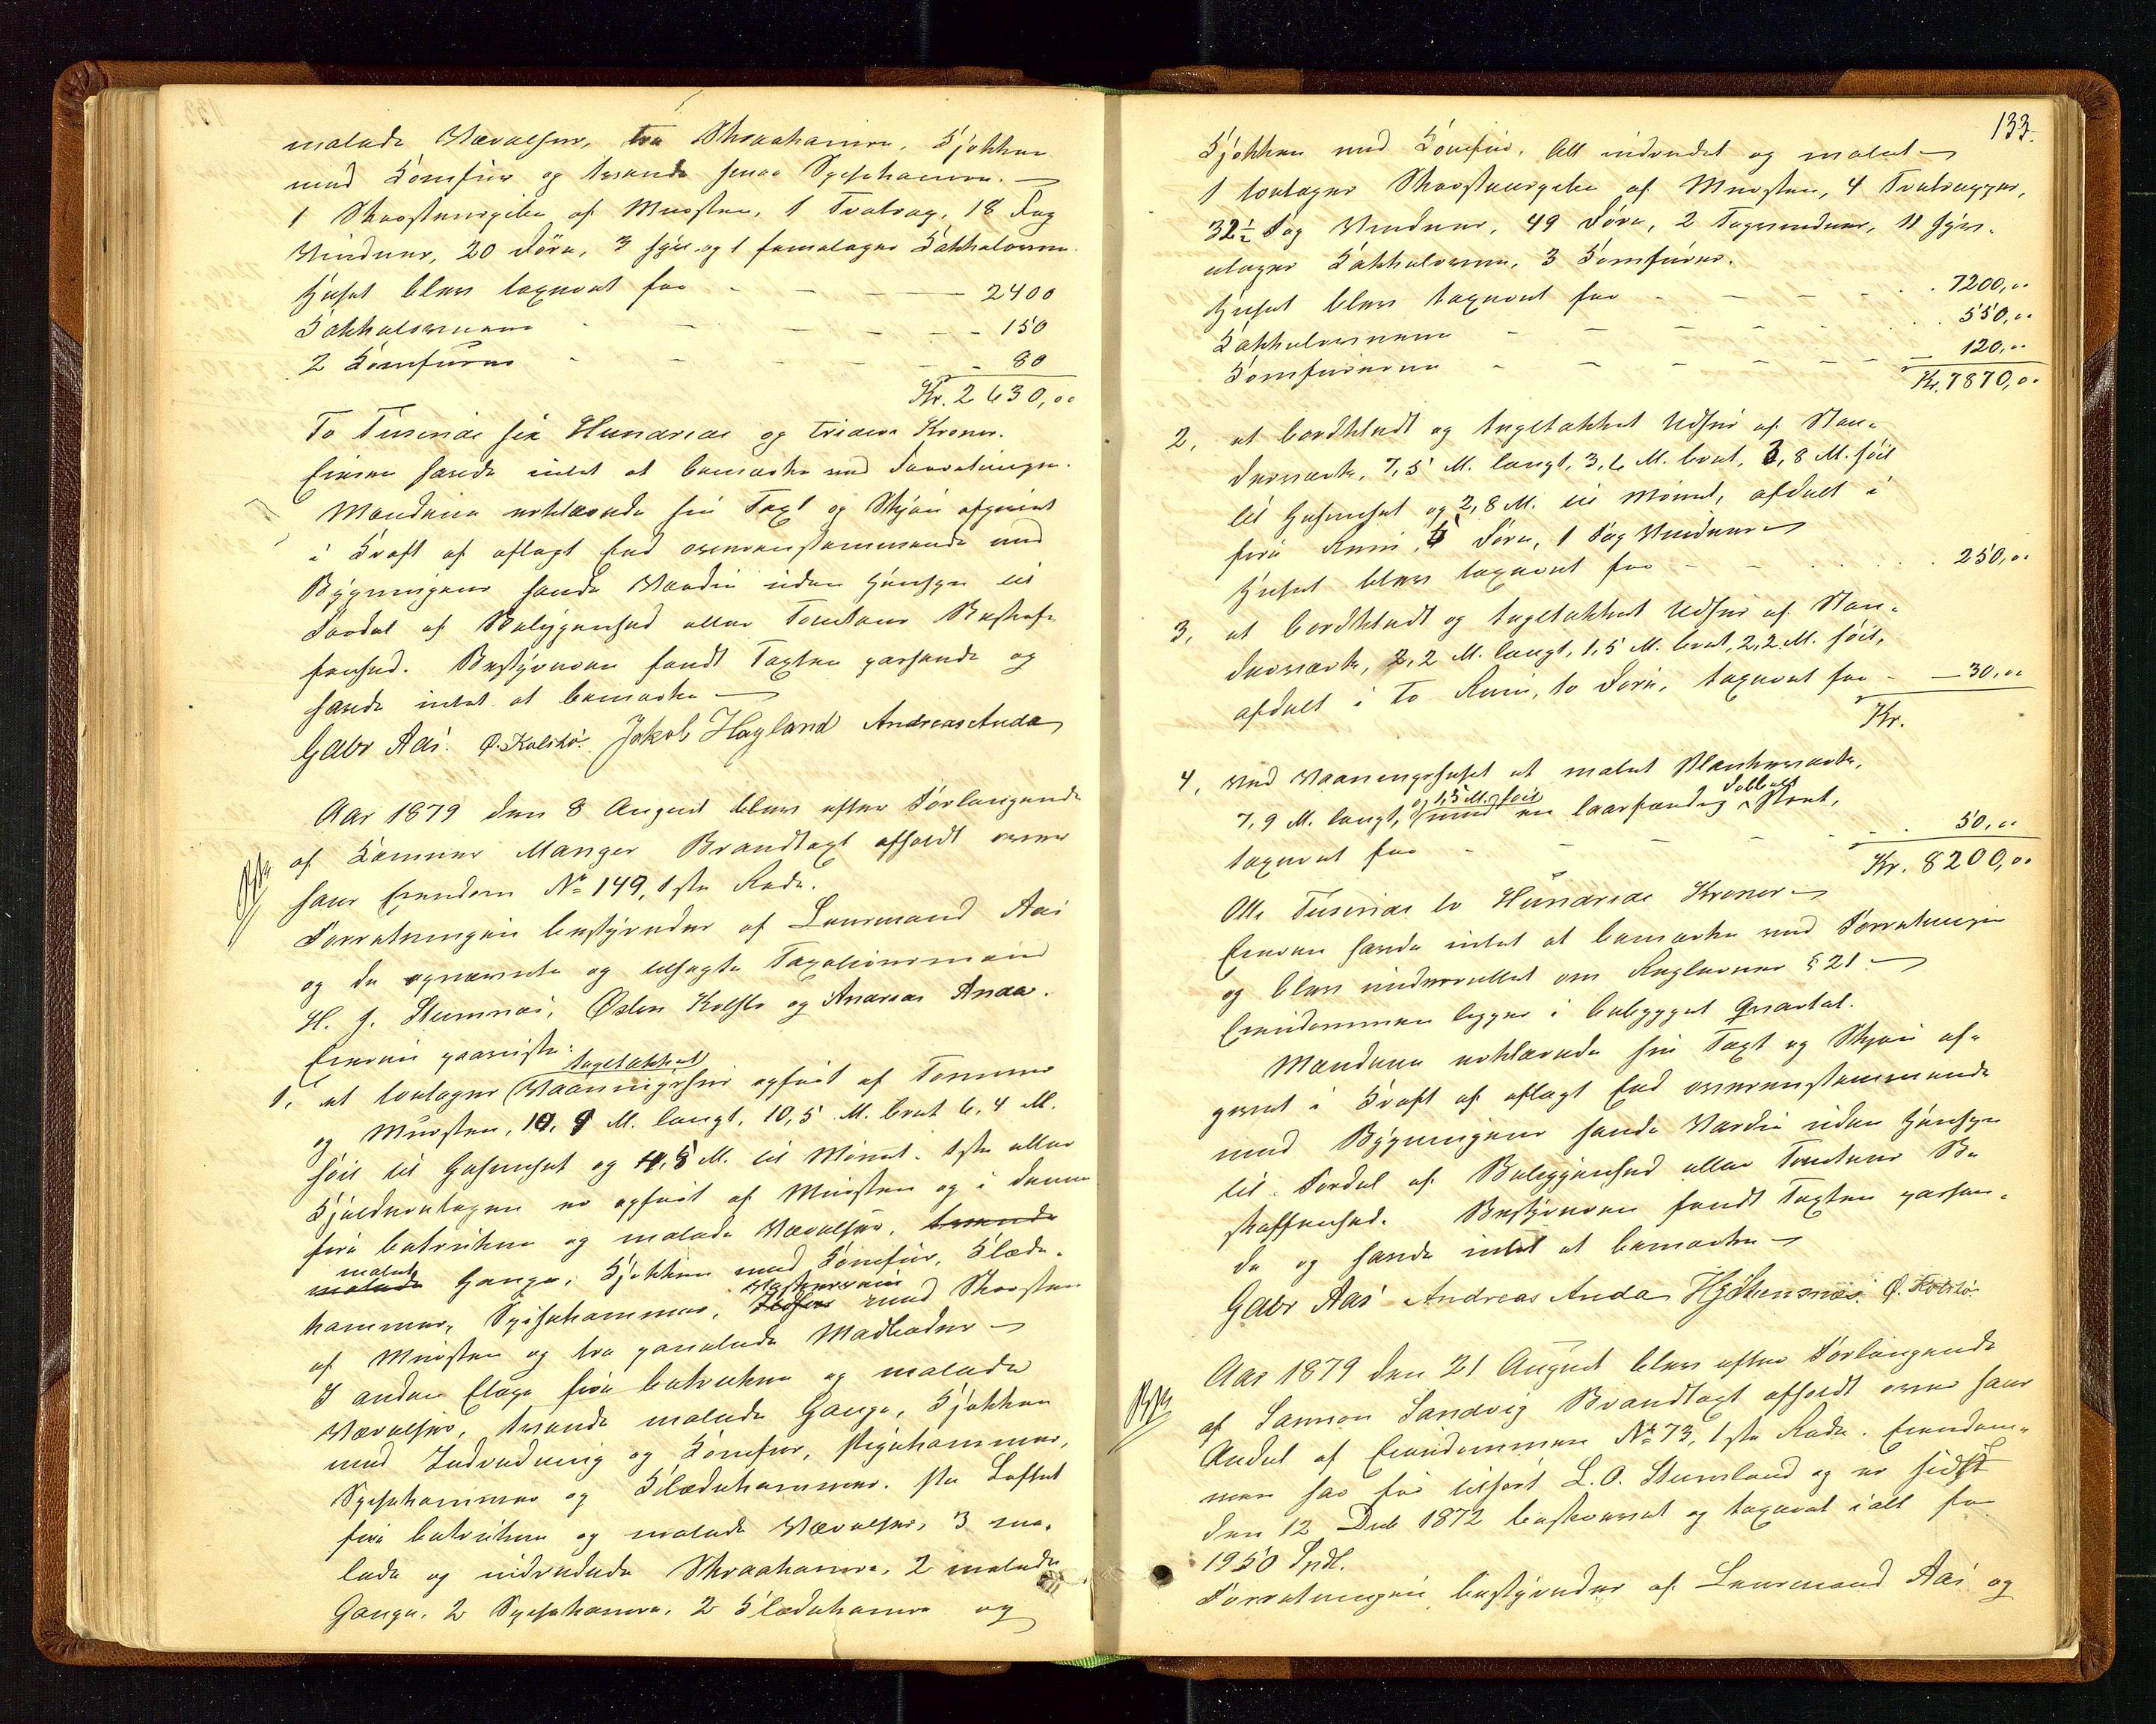 malede Værelser, tre Skraakamre, Kjøkken
med Komfur og tvende smaa Spisekamre. —
1 Skorstenspibe af Mursten, 1 Tvaltrap, 18 Fag
Vinduer, 20 Døre, 3 fyr og 1 femetages Kakkelovne.
Huset blev taxeret for - - - 2400
Kakkelovnene - - - 150
2 Komfurer - - - 80
Kr. 2630,00
To Tusinde sex Hundrede og tredive Kroner.
Eieren havde intet at bemærke ved Forretningen.
Mændene erklærede sin Taxt og Skjøn afgivet
i Kraft af aflagt Eed overensstemmende med
Bygningens sande Værdi uden Hensyn til
Fordel af Beliggenhed eller Tomtens Beskaf-
fenhed. Bestyreren fandt Taxten passende og
havde intet at bemærke —
Gabr Aas. Ø. Kolstø. Jakob Hagland Andreas Anda
Aar 1879 den 8 August blev efter Forlangende
af Kæmner Manger Brandtaxt afholdt over
hans Eiendom No 149, 1ste Rode.
Forretningen bestyredes af Lensmand Aas
og de opnævnte og tilsagte Taxationsmænd
H. J. Stensnæs, Østen Kolstø og Andreas Anda.
Eieren paaviste:
1, et toetages tagtækket Vaaningshus opført af Tømmer
og Mursten, 10,9 M. langt, 10,5 M. bret 6,4 M.
høit til Gesimset og 4,8 M. til Mønet. 1ste eller
Kjelderetagen er opført af Mursten og i denne
fire betrukne og malede Værelser, tvende
malede malet Gange, Kjøkken med Komfur, Klæde-
kammer, Spisekammer, Vaskerum med Skorsten
af Mursten og tre panelede Madboder —
I anden Etage fire betrukne og malede
Værelser, tvende malede Gange, Kjøkken
med Indredning og Komfur, Pigekammer,
Spisekammer og Klædekammer. Paa Loftet
fire betrukne og malede Værelser, 3 ma-
lede og indredede Skraakamre, 2 malede
Gange, 2 Spisekamre, 2 Klædekamre og
133.
Kjøkken med Komfur. Alt indredet og malet —
1 toetages Skorstenspibe af Mursten, 4 Tvaltrapper,
32½ Fag Vinduer, 49 Døre, 2 Tagvinduer, 11 fyr-
etages Kakkelovne, 3 Komfurer.
Huset blev taxeret for - - - 7200,00
Kakkelovnene - - - 550,00
Komfurerne - - - 120,00
Kr. 7870,00
2, et bordklædt og tagtækket Udhus af Stan-
derværk, 7,5 M. langt, 3,6 M. bret, 3,8 M. høit
til Gesimset og 2,8 M. til Mønet, afdelt i
fire Rum, 5 Døre, 1 Fag Vinduer —
Huset blev taxeret for - - - 250,00
3, et bordklædt og tagtækket Udhus af Stan-
derværk, 2,2 M. langt, 1,5 M. bret, 2,2 M. høit,
afdelt i to Rum, to Døre, taxeret for - 30,00
Kr.
4, ved Vaaningshuset et malet Plankeværk,
7,9 M. langt, og 1,5 M. høit med en laasfærdig dobbelt Port,
taxeret for - - - 50,00
Kr. 8200,00
Otte Tusinde to Hundrede Kroner —
Eieren havde intet at bemærke ved Forretningen
og blev underrettet om Reglernes § 21 —
Eiendommen ligger i bebygget Qvartal.
Mændene erklærede sin Taxt og Skjøn af-
givet i Kraft af aflagt Eed overensstemmende
med Bygningens sande Værdi uden Hensyn
til Fordel af Beliggenhed eller Tomtens Be
skaffenhed. Bestyreren fandt Taxten passen-
de og havde intet at bemærke —
Gabr Aas Andreas Anda HJStensnæs. Ø. Kolstø
Aar 1879 den 21 August blev efter Forlangende
af Samson Sandvig Brandtaxt afholdt over hans
Andel af Eiendommen No 73, 1ste Rode. Eiendom-
men har før tilhørt L. O. Stensland og er sidst
den 12 Deb 1872 beskrevet og taxeret ialt for
1950 Spdl.
Forretningen bestyredes af Lensmand Aas og